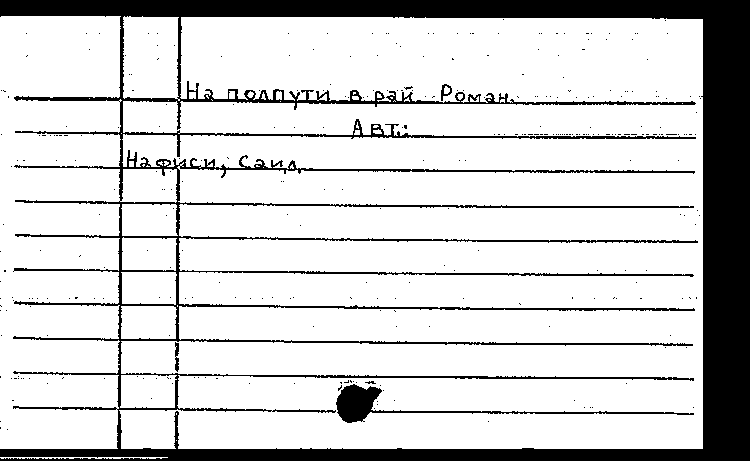 На полпути в рай Роман.
Авт.:
Нафиси, Саид.